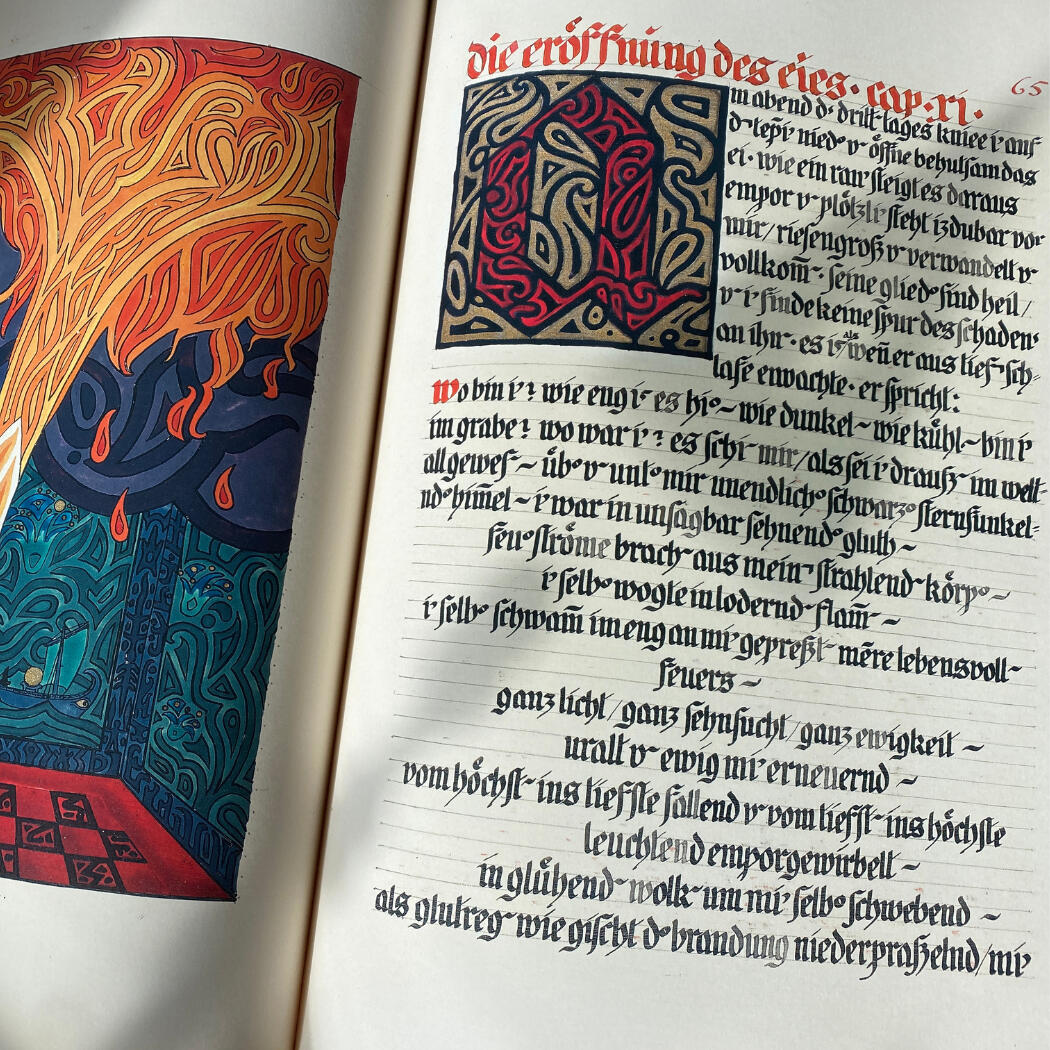 die eröffnung des eies. cap. xi.
65
Am abend d' dritt- tages knie i' auf
d- tepi' nied° v' öffne behutsam das
ei. wie ein rau' steigt es daraus
empor v' plötzli' steht izdubar vor
mir/ riesengroß v' verwandelt v'
vollkom̄-. seine glied° sind heil/
v' i' finde keine spur des schaden's
an ihm. es i' als wen̄ er aus tief- sch-
lafe erwachte. er spricht:
wo bin i'? wie eng i' es hi° – wie dunkel – wie kühl – bin i'
im grabe? wo war i'? es schi- mir/ als sei i' drauß- im welt-
all gewes- – üb° v' unt° mir unendlich° schwarz° sternfunkel-
nd° him̄el – i' war in unsagbar sehnend° gluth –
feu°ströme brach- aus mein- strahlend- körp° –
i' selb° wogte in lodernd- flam̄- –
i' selb° schwam̄ in eng an mi' gepreßt- mēre lebensvoll-
feuers –
ganz licht/ ganz sehnsucht/ ganz ewigkeit –
uralt v' ewig mi' erneuernd –
vom höchst- ins tiefste fallend v' vom tiefst- ins höchste
leuchtend emporgewirbelt –
in glühend- wolk- um mi' selb° schwebend –
als glutreg- wie gischt d° brandung niederpraßelnd/ mi'